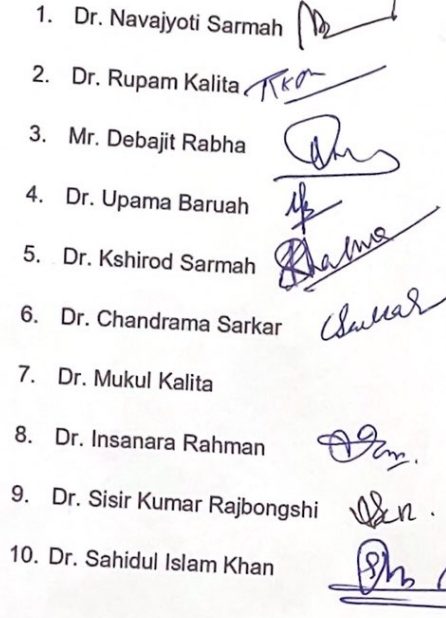 1. Dr. Navajyoti Sarmah
2. Dr. Rupam Kalita
3. Mr. Debajit Rabha
4. Dr. Upama Baruah
5. Dr. Kshirod Sarmah
6. Dr. Chandrama Sarkar
7. Dr. Mukul Kalita
8. Dr. Insanara Rahman
9. Dr. Sisir Kumar Rajbongshi
10. Dr. Sahidul Islam Khan